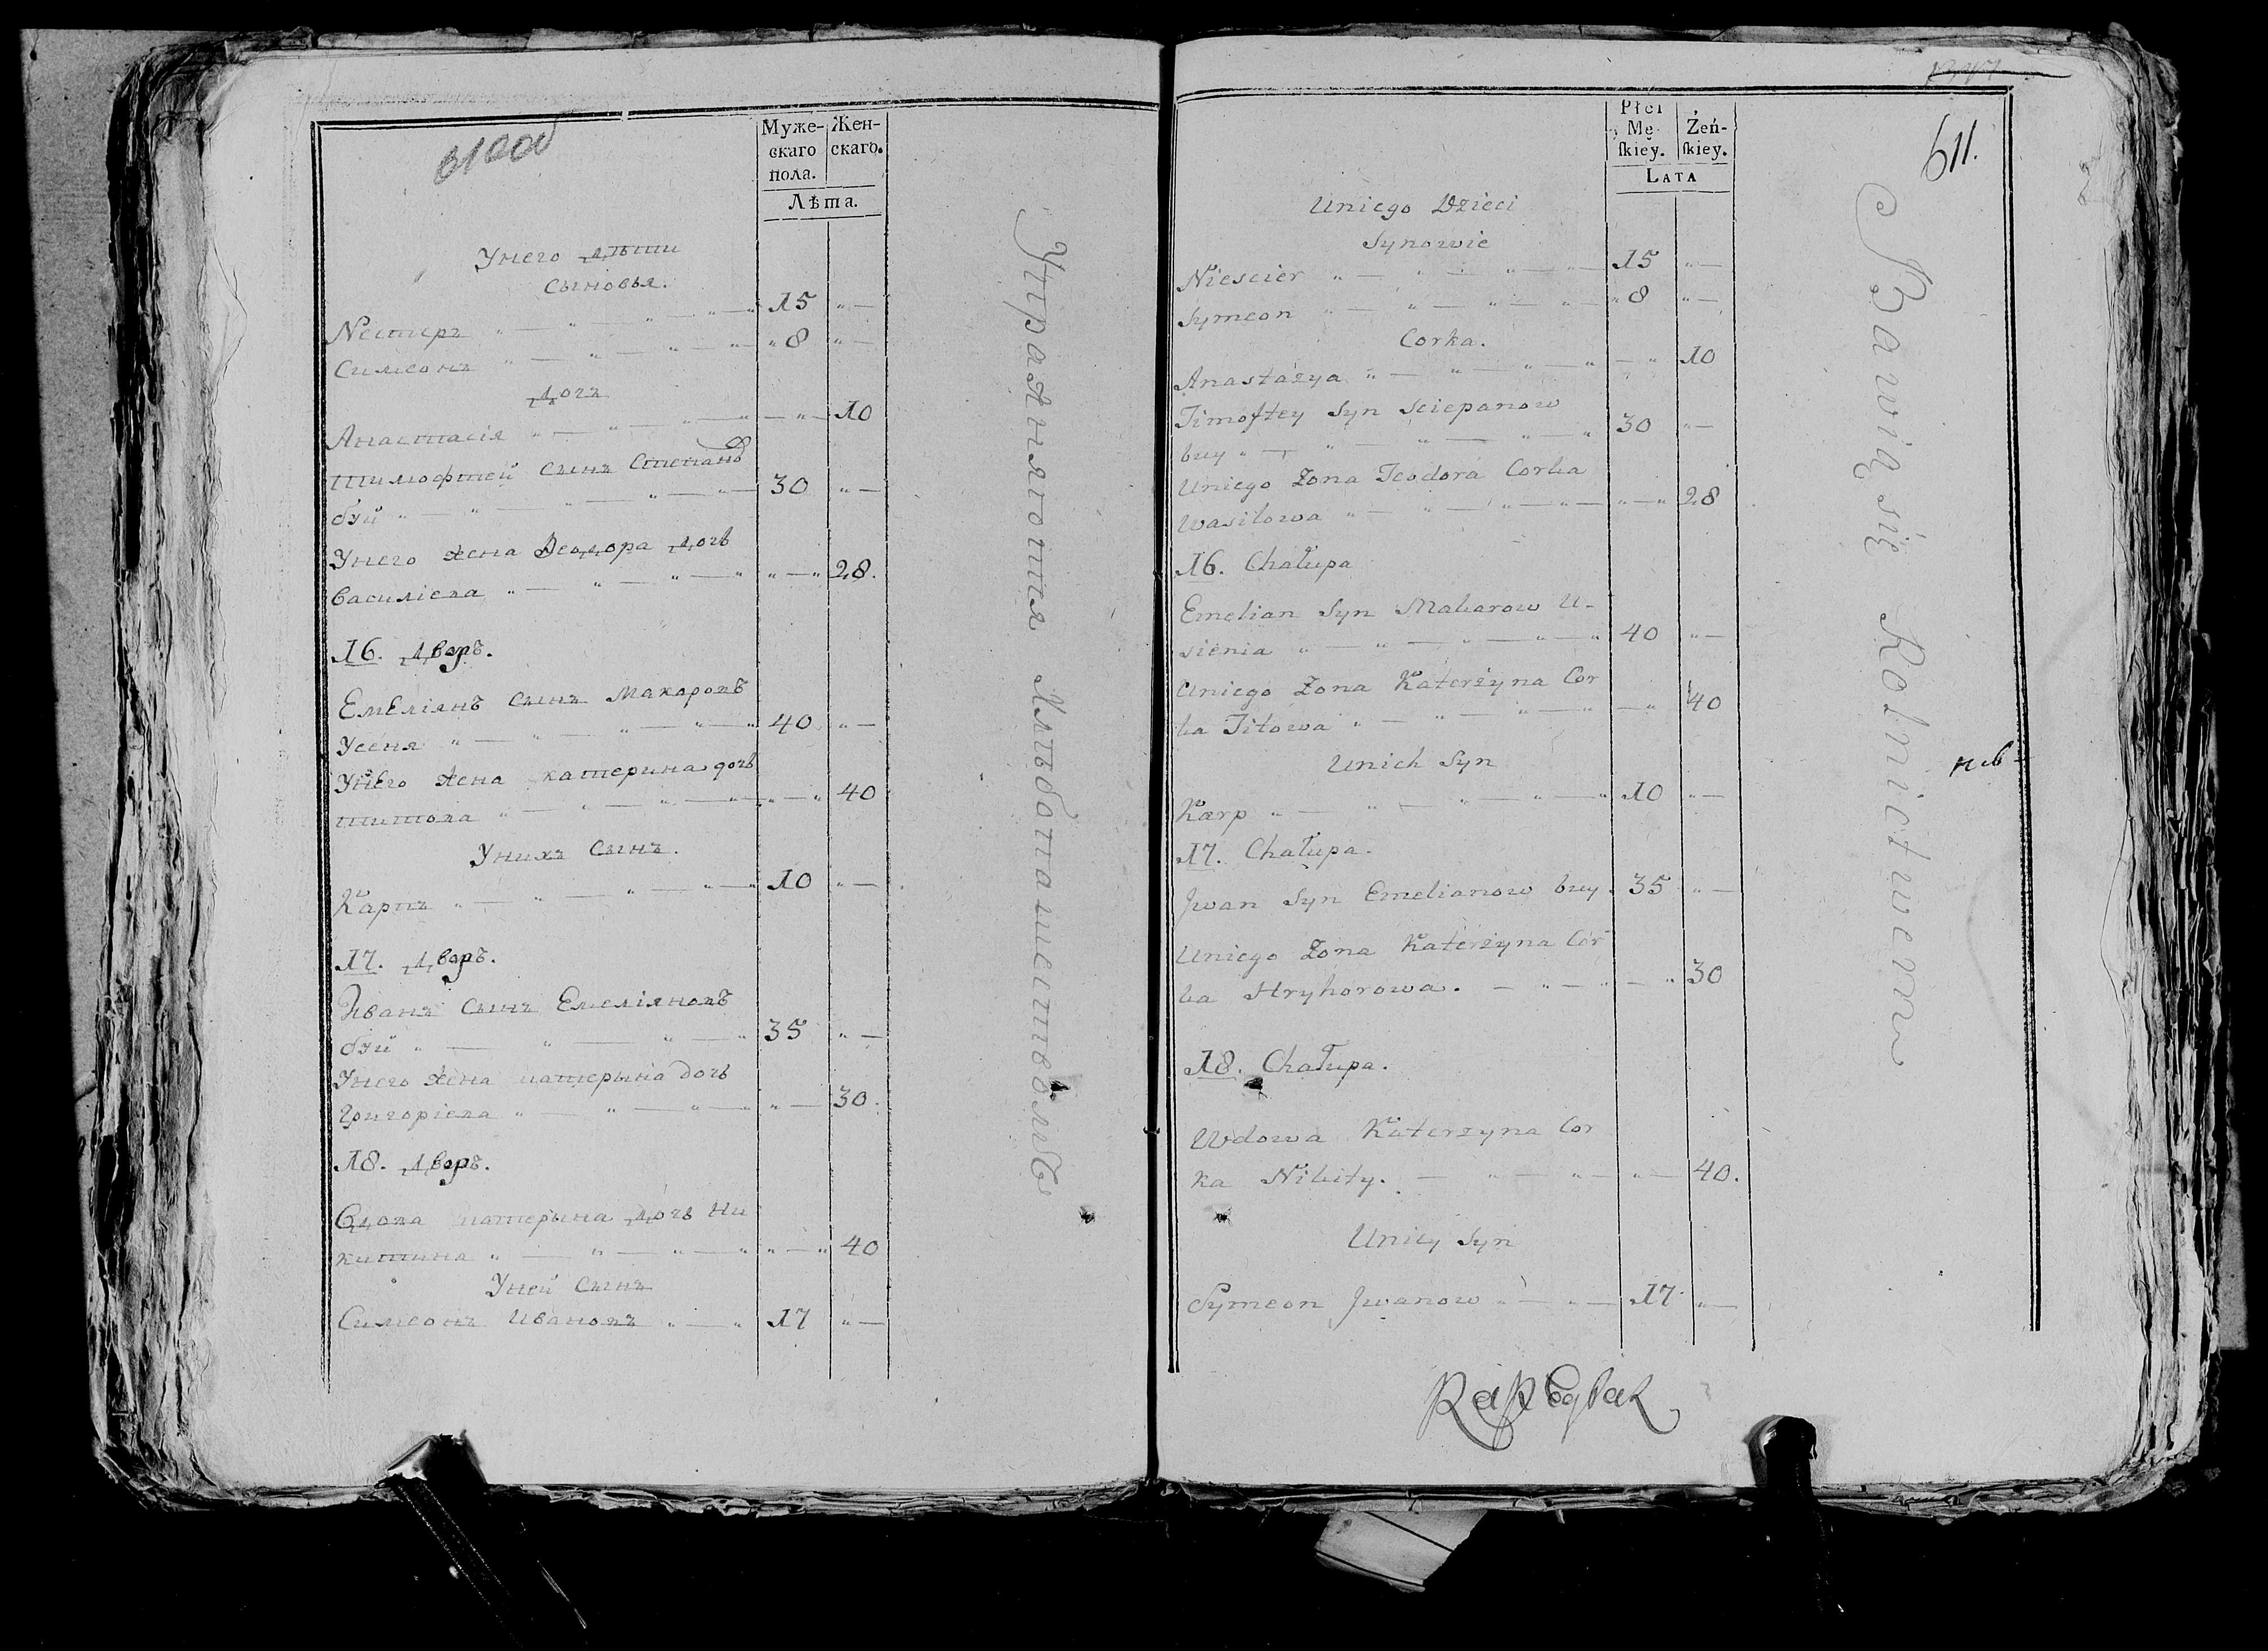 Муже-
скаго
пола.
Жен-
скаго.
Лѣта.
Унего дѣти
Сыновья.
Нестеръ 15
Симеонъ 8
Дочь
Анастасія 10
Тимофтей Сынъ Степановъ
буй 30
Унего жена Ѳеодора дочь
василіева 28.
16. дворъ.
Емеліянъ сынъ Макаровъ
Усеня 40
Унего жена катерина дочь
титова 40
Унихъ Сынъ.
Карпъ 10
17. дворъ.
Иванъ Сынъ Емеліяновъ
буй 35
Унего жена катерына дочь
григоріева 30.
18. дворъ.
Вдова катерына дочь Ни
китина 40
Уней Сынъ
Симеонъ Ивановъ 17
Упражняются хлѣбопашествомъ
Płci
Mę-
skiey.
Żeń-
skiey.
LATA
611.
Uniego Dzieci
Synowie
Niescier 15
Symeon 8
Corka.
Anastazya 10
Timoftey Syn Sciepanow
buy 30
Uniego Zona Teodora Corka
Wasilowa 28
16. Chałupa
Emelian Syn Makarow U-
sienia 40
Uniego Zona Katerzyna Cor
ka Titowa 40
Unich Syn
Karp 10
17. Chałupa.
Jwan Syn Emelianow buy. 35
Uniego Zona Katerzyna Cór
ka Hryhorowa. 30
18. Chałupa.
Wdowa Katerzyna Cor
ka Nikity. 40.
Uniey Syn
Symeon Jwanow 17
Bawią się Rolnictwem